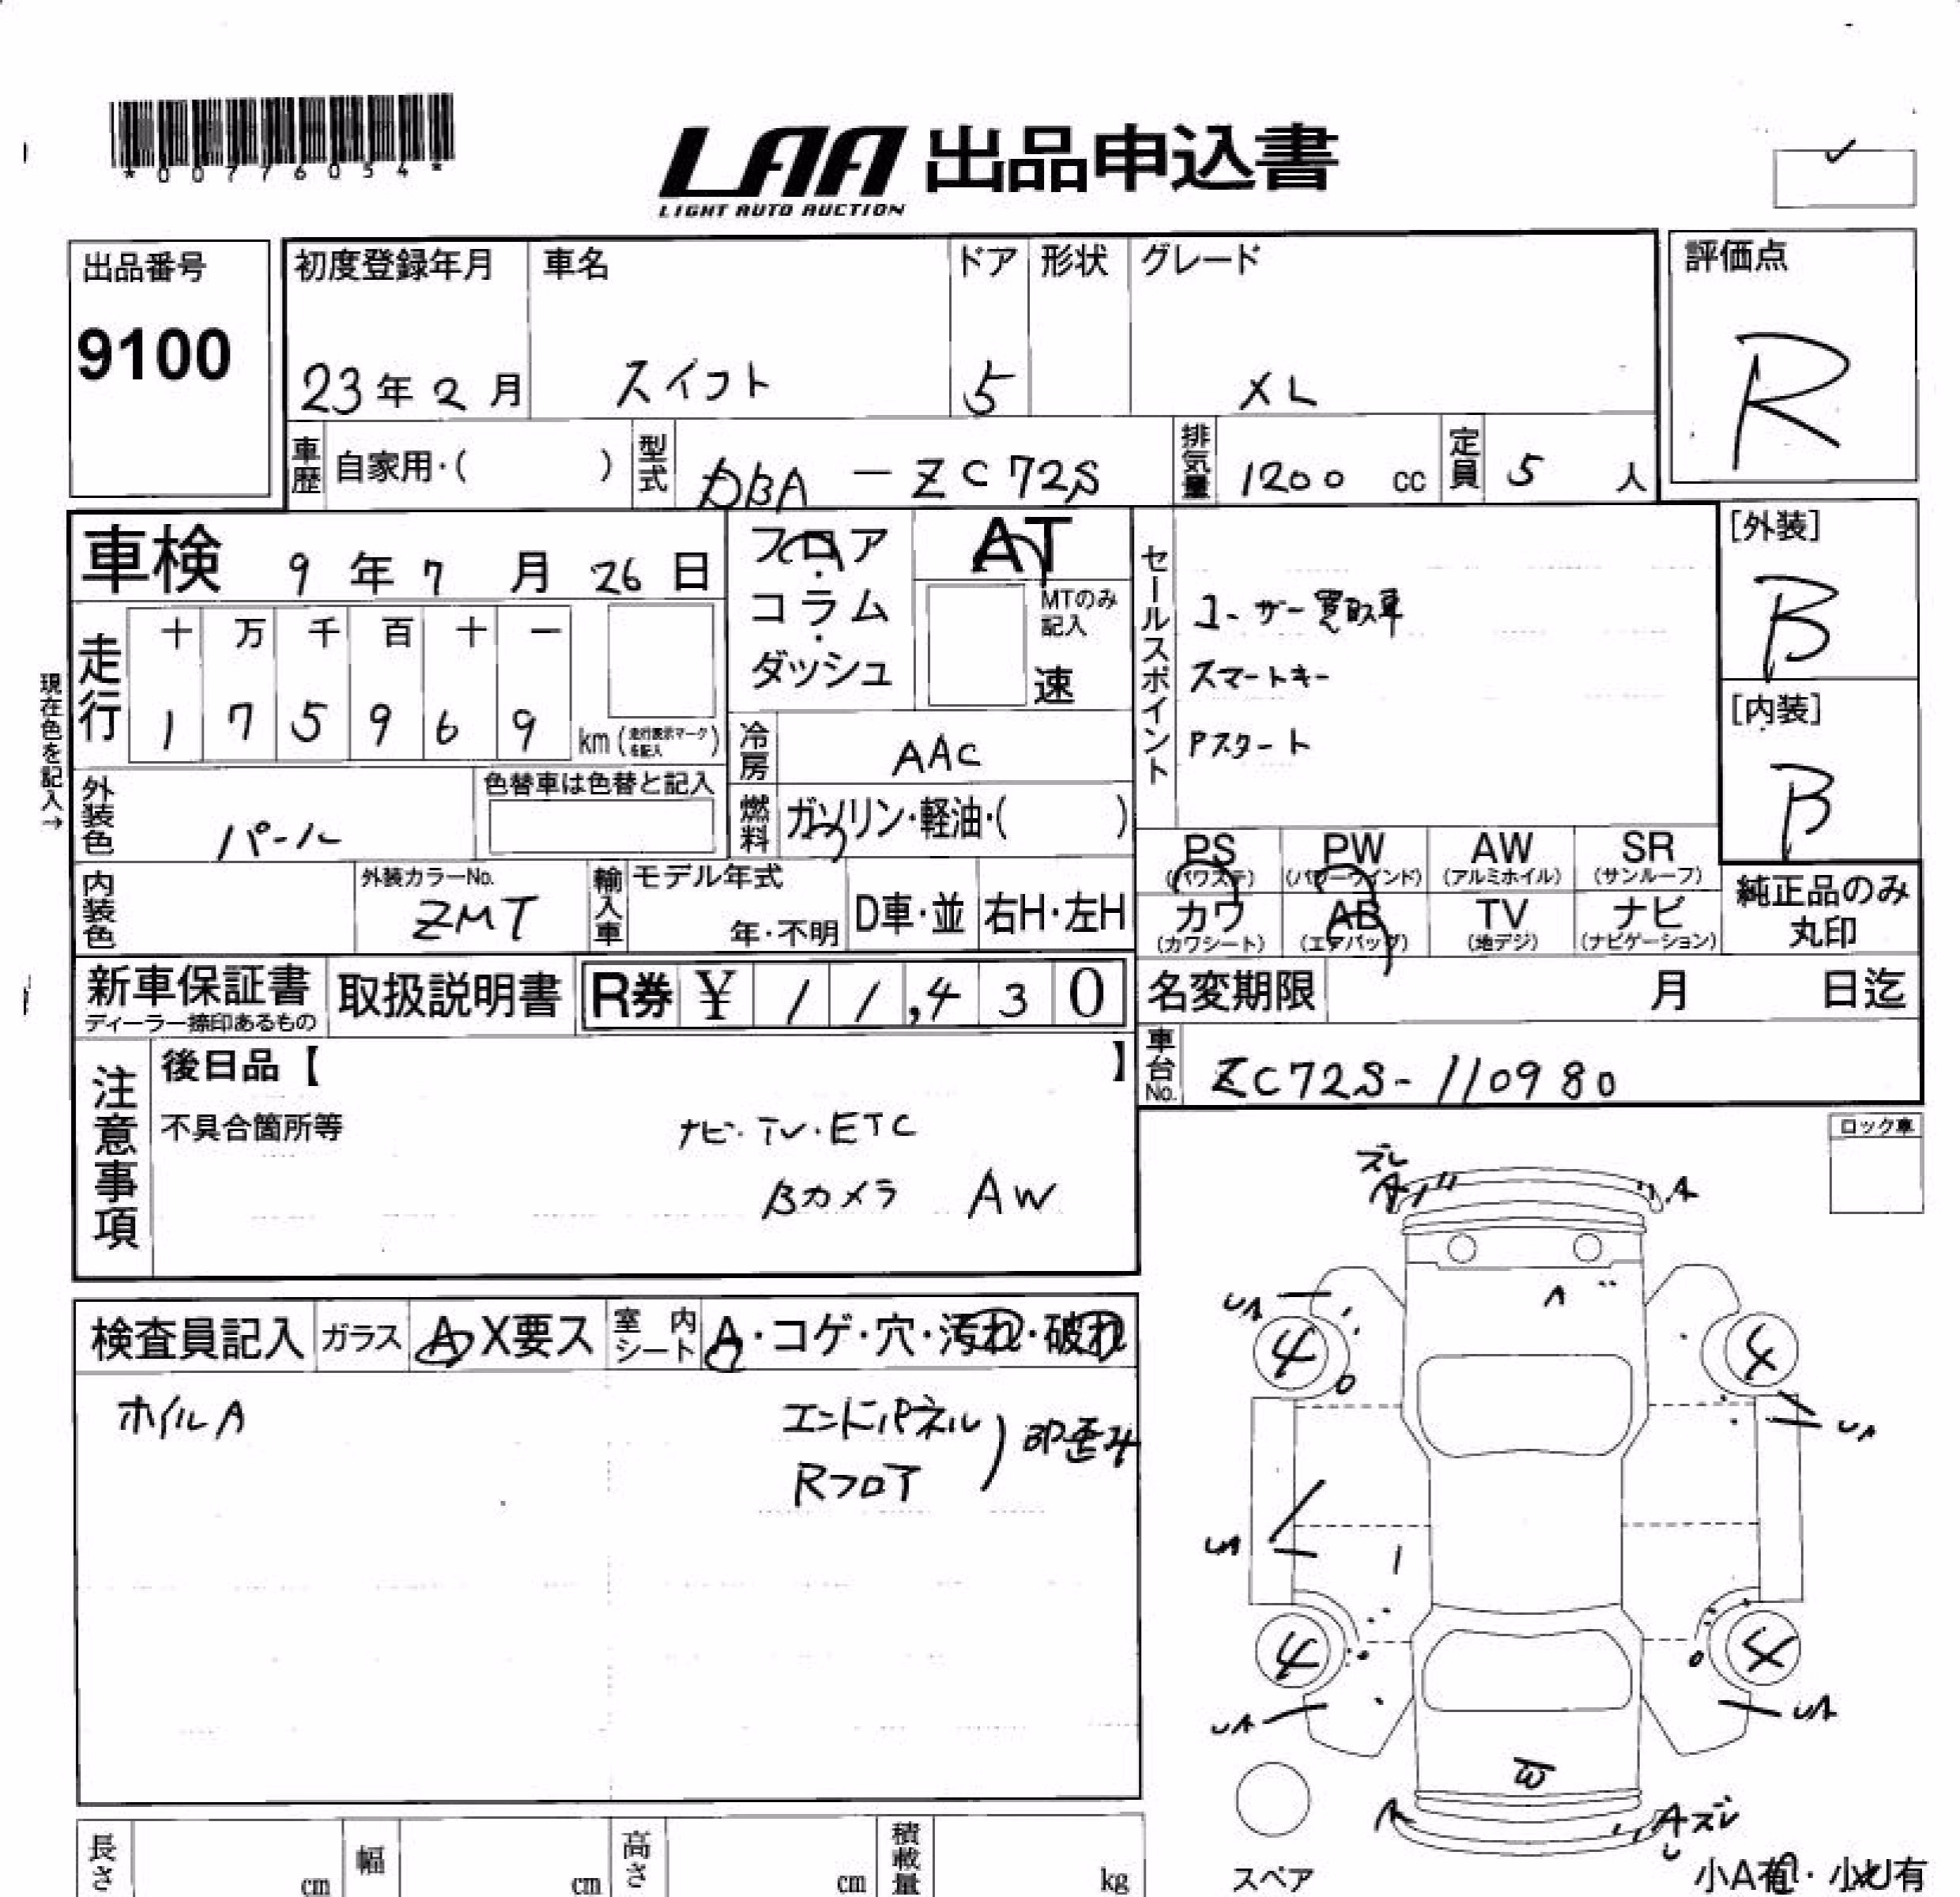 *00776054*
LAA 出品申込書
LIGHT AUTO AUCTION
出品番号
9100
初度登録年月 車名 ドア 形状 グレード
23年2月 スイフト 5 XL
評価点
R
車歴 自家用・( ) 型式 DBA-ZC72S 排気量 1200 cc 定員 5 人
車検 9年7月26日
フロア・コラム・ダッシュ
AT
MTのみ記入
速
セールスポイント
ユーザー買取車
スマートキー
Pスタート
[外装]
B
[内装]
B
現在色を記入→
走行
十 万 千 百 十 一
1 7 5 9 6 9 km (走行表示マークを記入)
冷房 AAC
外装色 パール
色替車は色替と記入
燃料 ガソリン・軽油・( )
PS (パワステ) PW (パワーウインド) AW (アルミホイル) SR (サンルーフ)
カワ (カワシート) AB (エアバッグ) TV (地デジ) ナビ (ナビゲーション)
純正品のみ
丸印
内装色 外装カラーNo. ZMT
輸入車 モデル年式 年・不明 D車・並 右H・左H
新車保証書
ディーラー捺印あるもの
取扱説明書
R券 ¥ 11,430
名変期限 月 日迄
車台No. ZC72S-110980
注意事項
後日品【 】
不具合箇所等
ナビ・TV・ETC
Bカメラ AW
ロック車
検査員記入 ガラス A X要ス 室内シート A・コゲ・穴・汚れ・破れ
ホイルA
エンドパネル
Rフロア
) 凹歪み
ズレ
A A
UA
4 4
UA
UA
4 4
UA UA
A Aズレ
スペア
小A有・小U有
長さ cm 幅 cm 高さ cm 積載量 kg